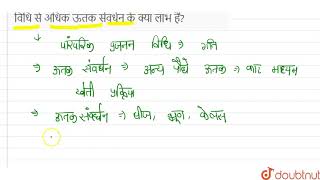 विधि से अधिक ऊतक संवर्धन के क्या लाभ हैं?
→ पारंपरिक प्रजनन विधि ⇒ गति
→ ऊतक संवर्धन ⇒ अन्य पौधे ऊतक ⇒ काट माध्यम
खेती प्रक्रिया
→ ऊतक संवर्धन ⇒ बीज, भ्रूण, केलस
doubtnut